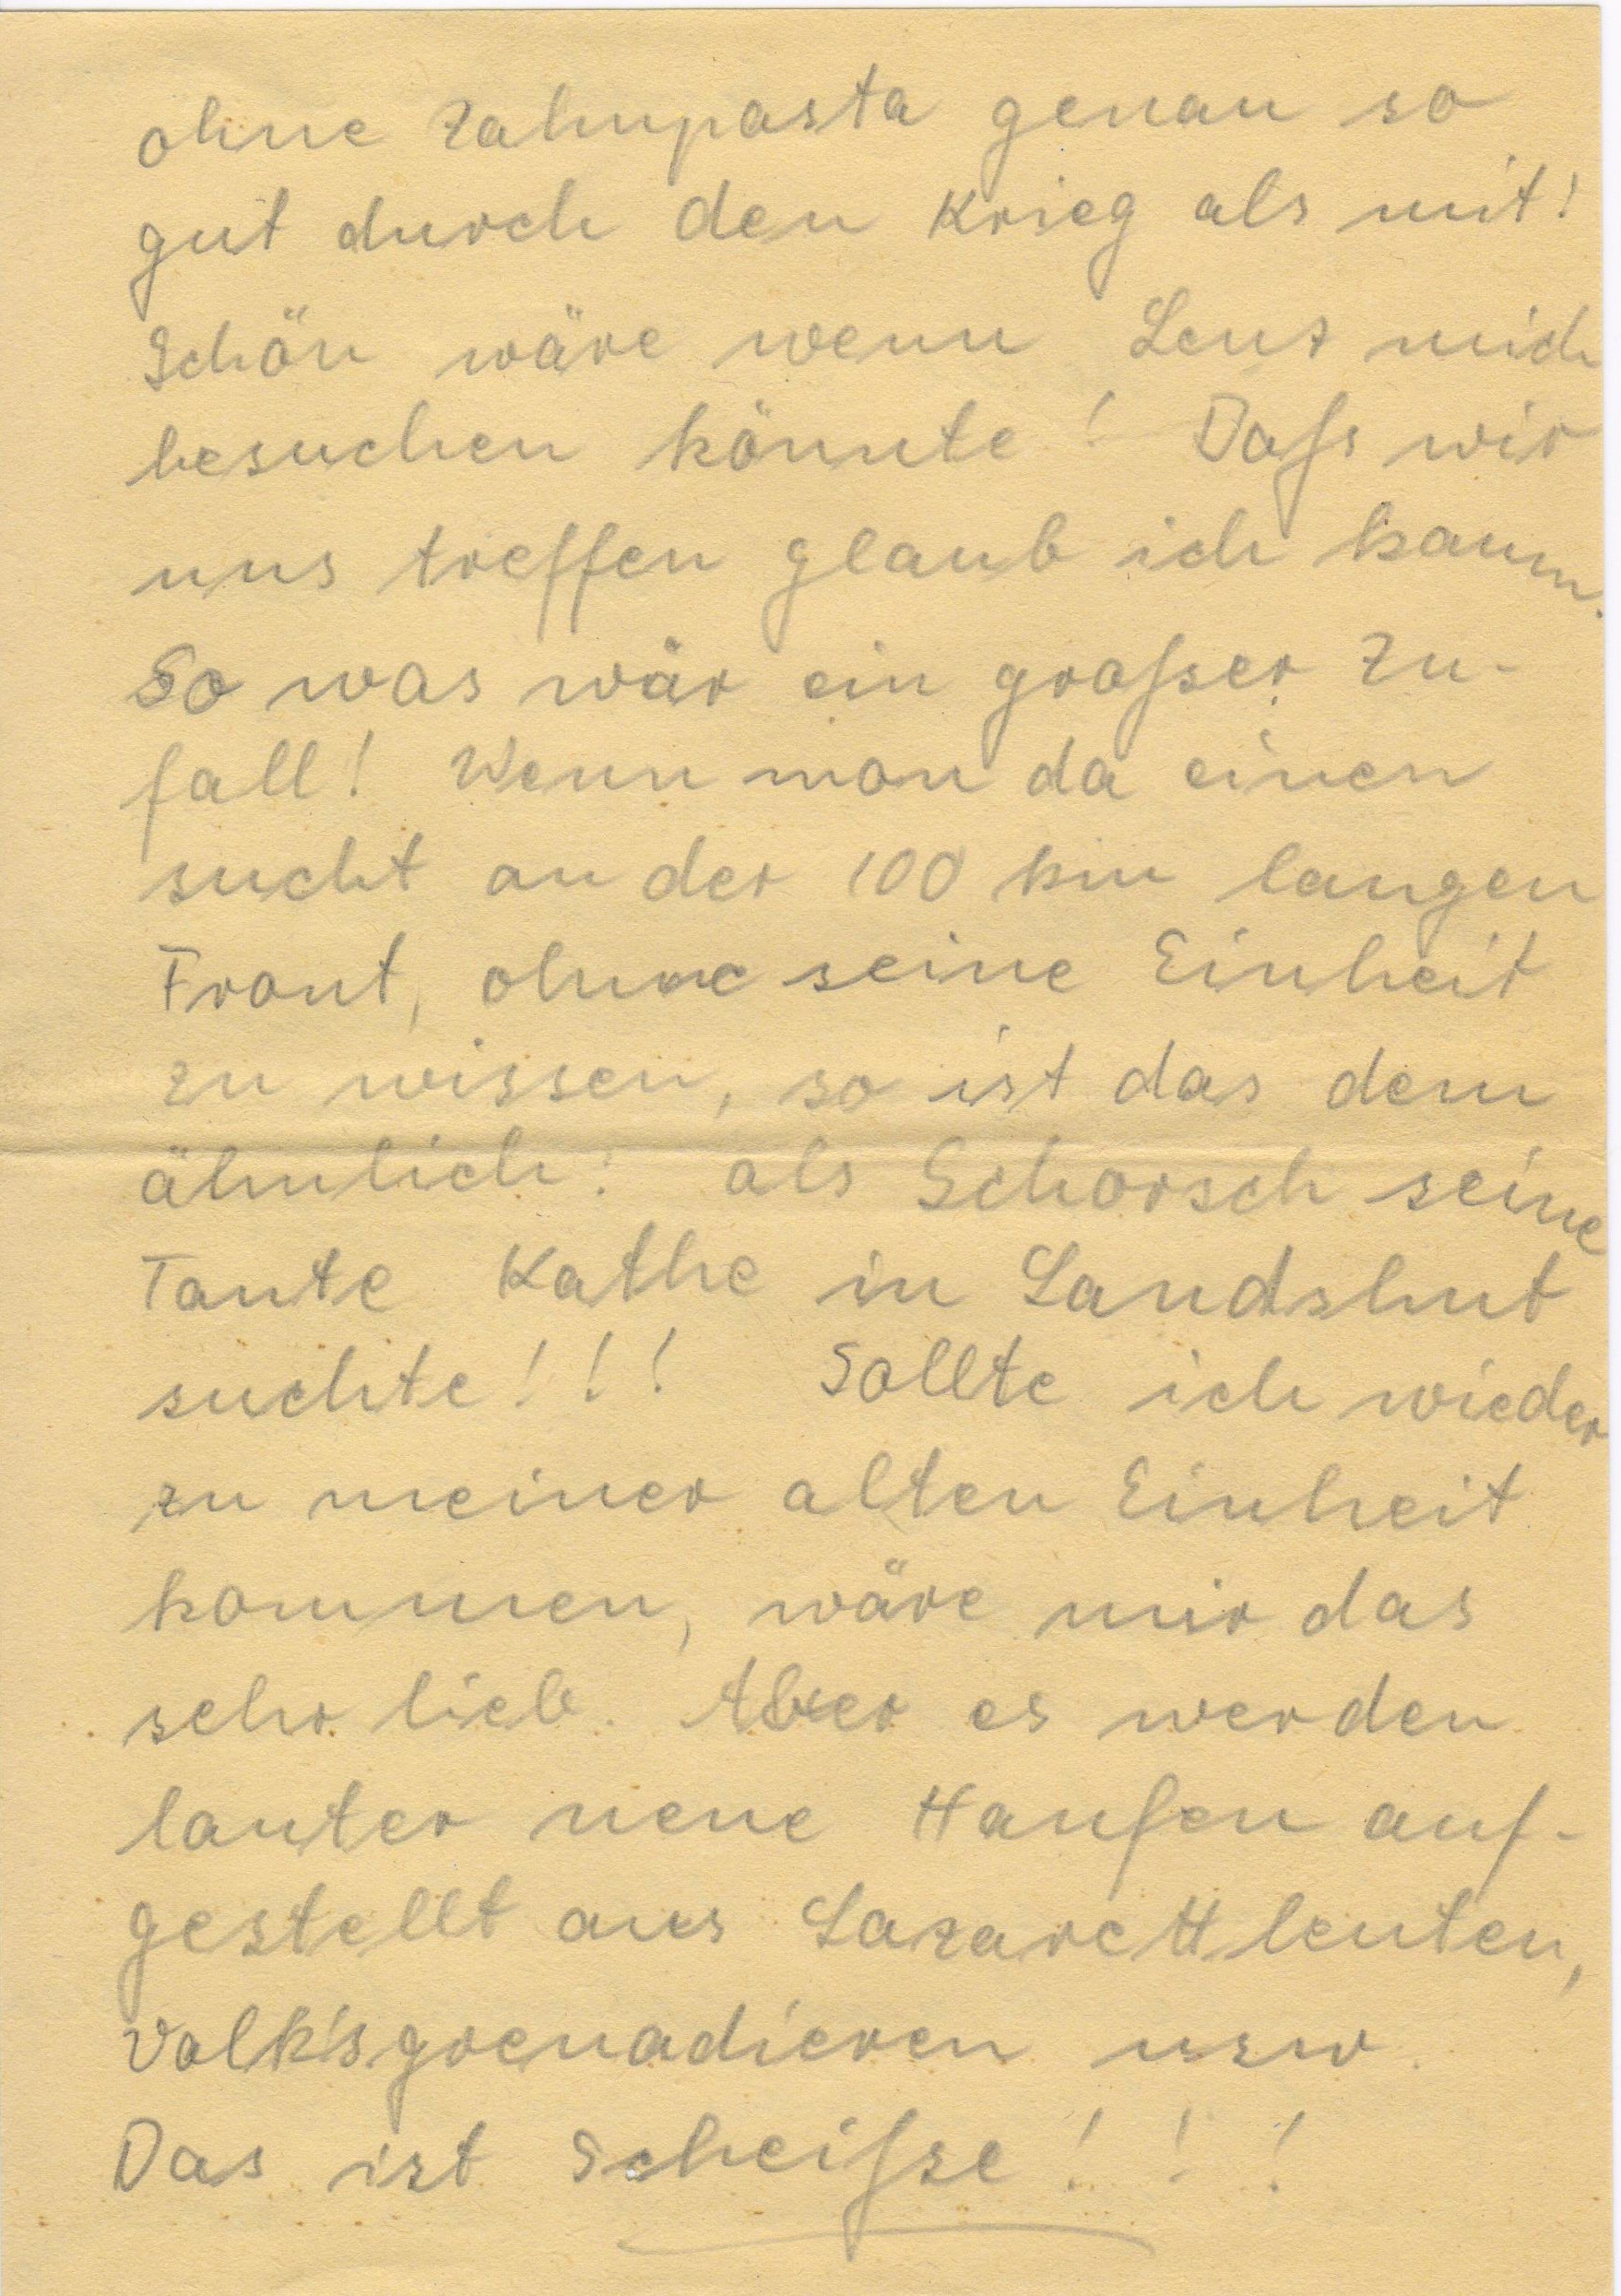 ohne Zahnpasta genau so
gut durch den Krieg als mit!
Schön wäre wenn Lenz mich
besuchen könnte! Dafs wir
uns treffen glaub ich kaum.
So was wär ein grofser Zu-
fall! Wenn man da einen
sucht an der 100 km langen
Front, ohne seine Einheit
zu wissen, so ist das dem
ähnlich: als Schorsch seine
Tante Kathe in Landshut
suchte!!! Sollte ich wieder
zu meiner alten Einheit
kommen, wäre mir das
sehr lieb. Aber es werden
lauter neue Haufen auf-
gestellt aus Lazarettleuten,
Volksgrenadieren usw.
Das ist Scheifse!!!